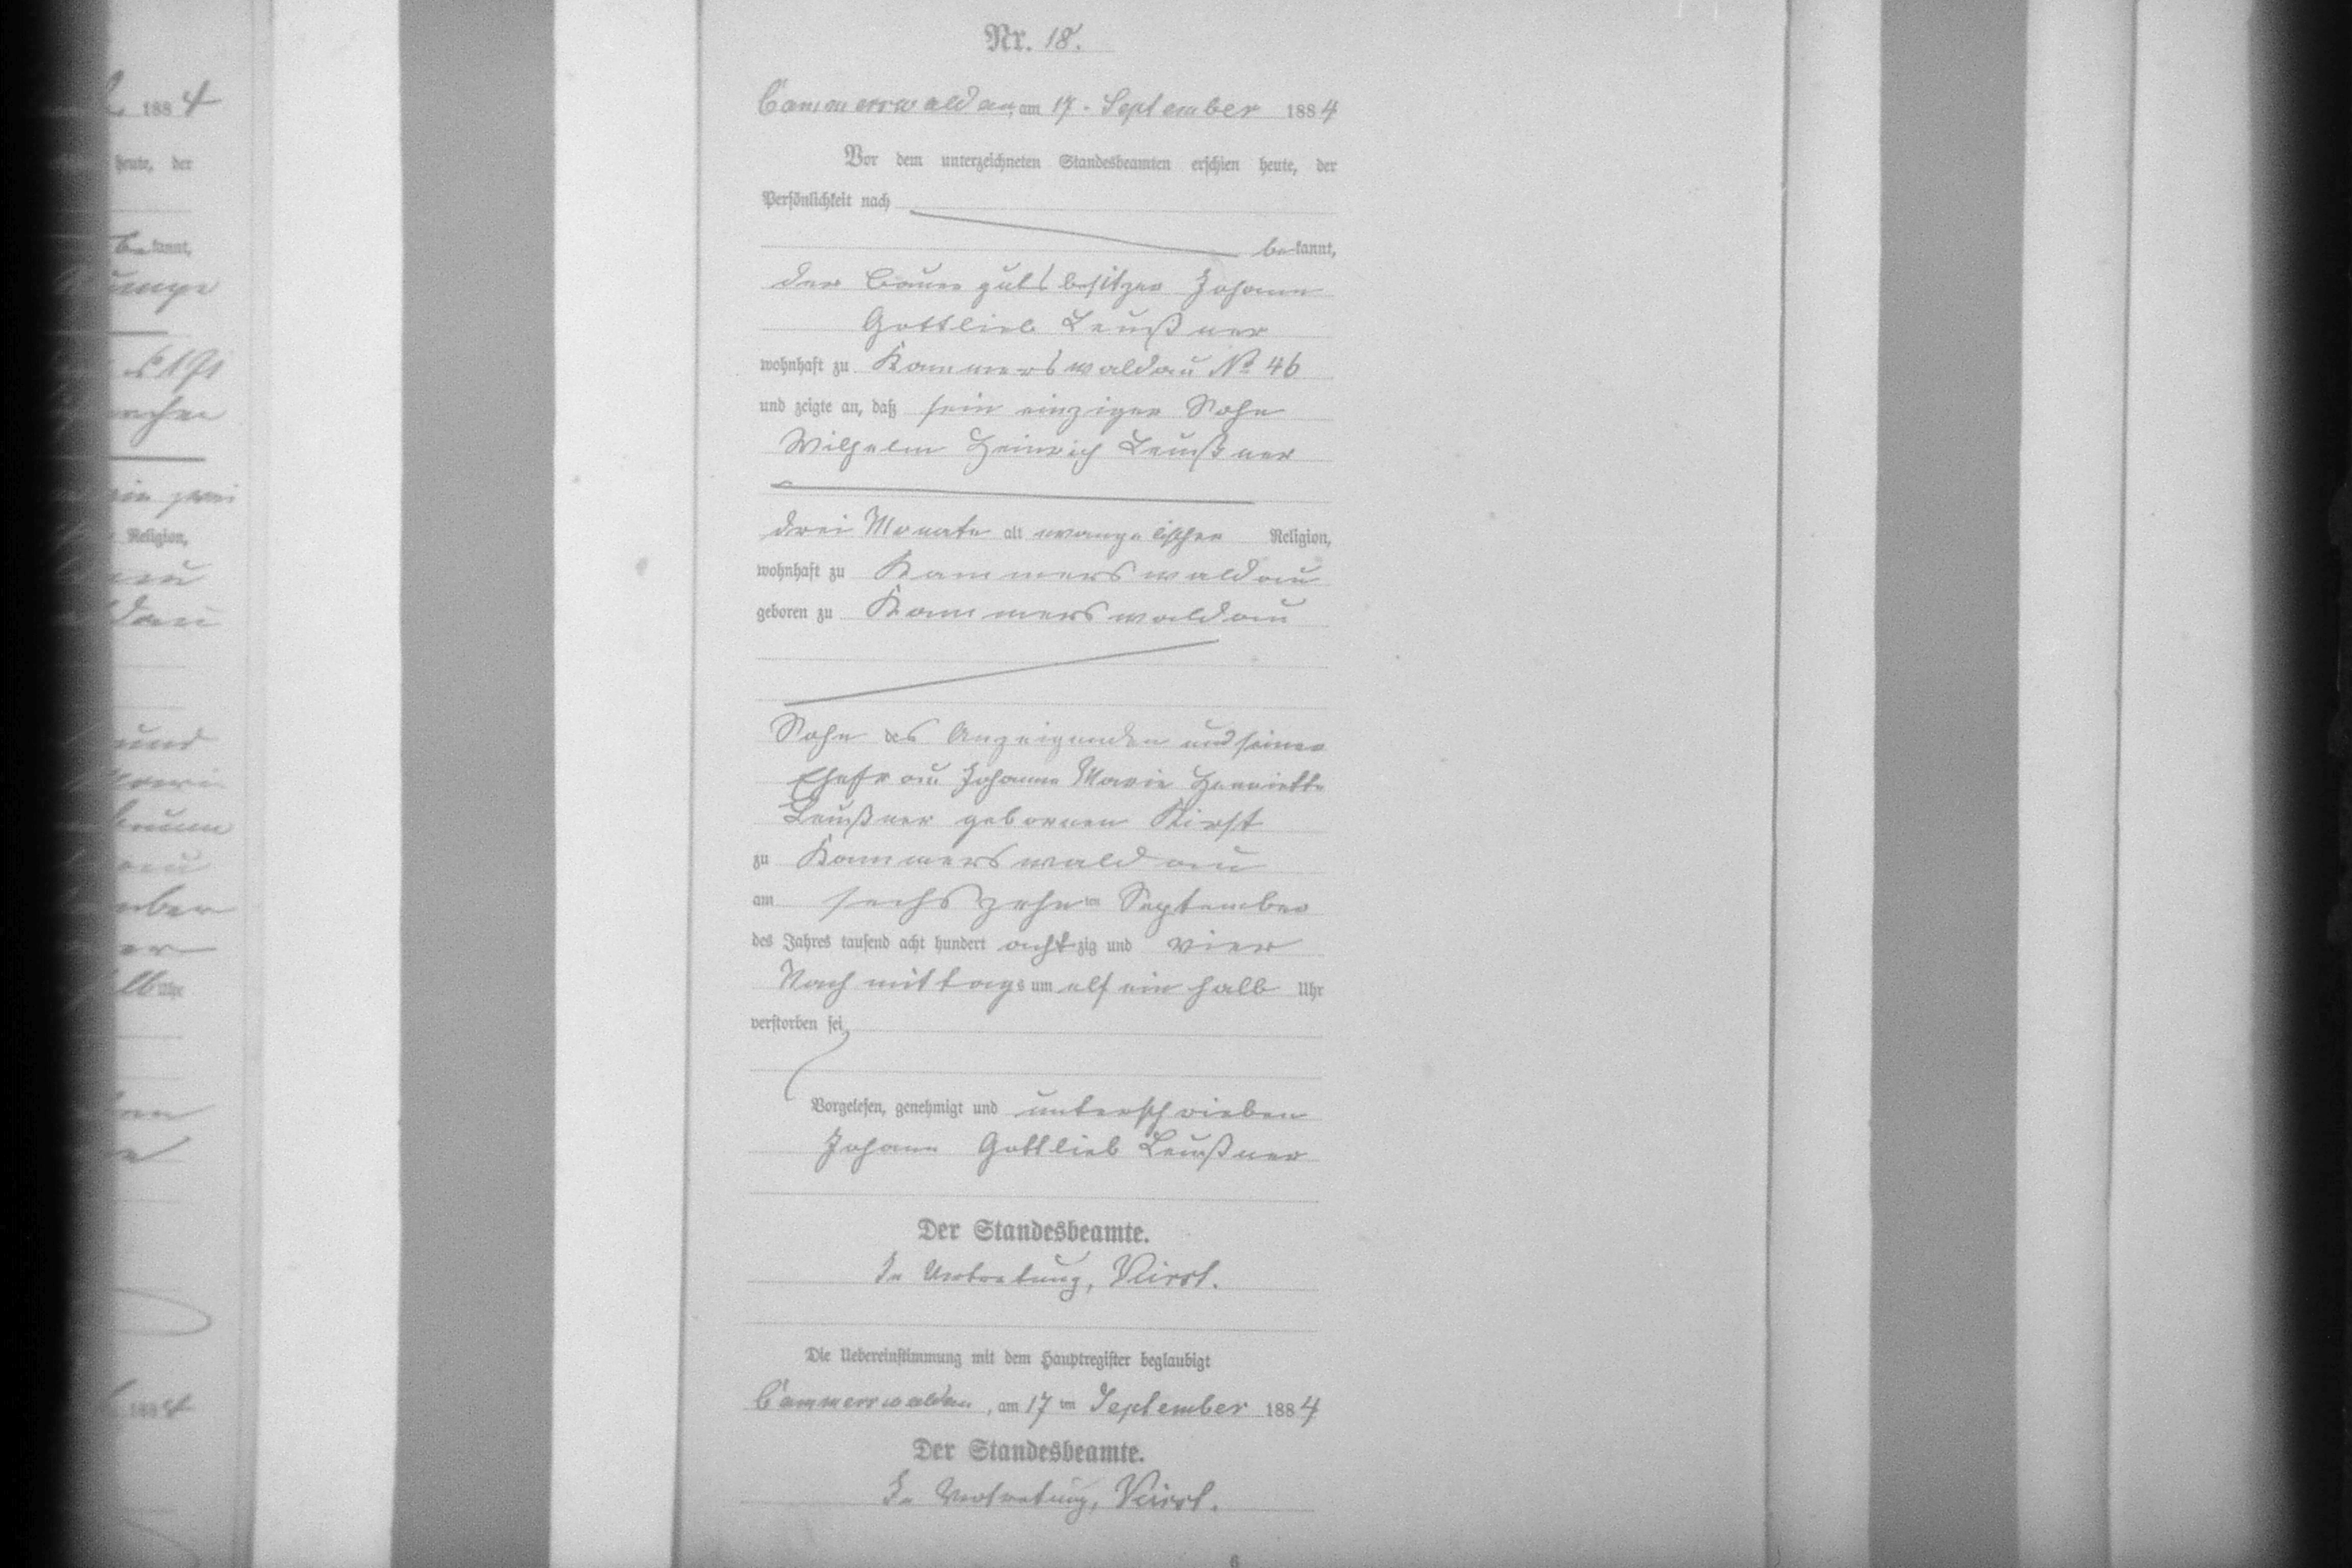 Nr. 18.
Cammerswaldau, am 17. September 1884
Vor dem unterzeichneten Standesbeamten erschien heute, der
Persönlichkeit nach
bekannt,
der Bauergutsbesitzer Johann
Gottlieb Leußner
wohnhaft zu Kammerswaldau No 46
und zeigte an, daß sein einziger Sohn
Wilhelm Heinrich Leußner
drei Monate alt evangelischer Religion,
wohnhaft zu Kammerswaldau
geboren zu Kammerswaldau
Sohn des Anzeigenden und seiner
Ehefrau Johanne Marie Henriette
Leußner gebornen Kirst
zu Kammerswaldau
am sechszehnten September
des Jahres tausend acht hundert achtzig und vier
Nachmittags um elf ein halb Uhr
verstorben sei,
Vorgelesen, genehmigt und unterschrieben
Johann Gottlieb Leußner
Der Standesbeamte.
In Vertretung, Kirst.
Die Uebereinstimmung mit dem Hauptregister beglaubigt
Cammerswaldau, am 17ten September 1884
Der Standesbeamte.
In Vertretung, Kirst.
6
1884
heute, der
bekannt,
Religion,
und
Uhr